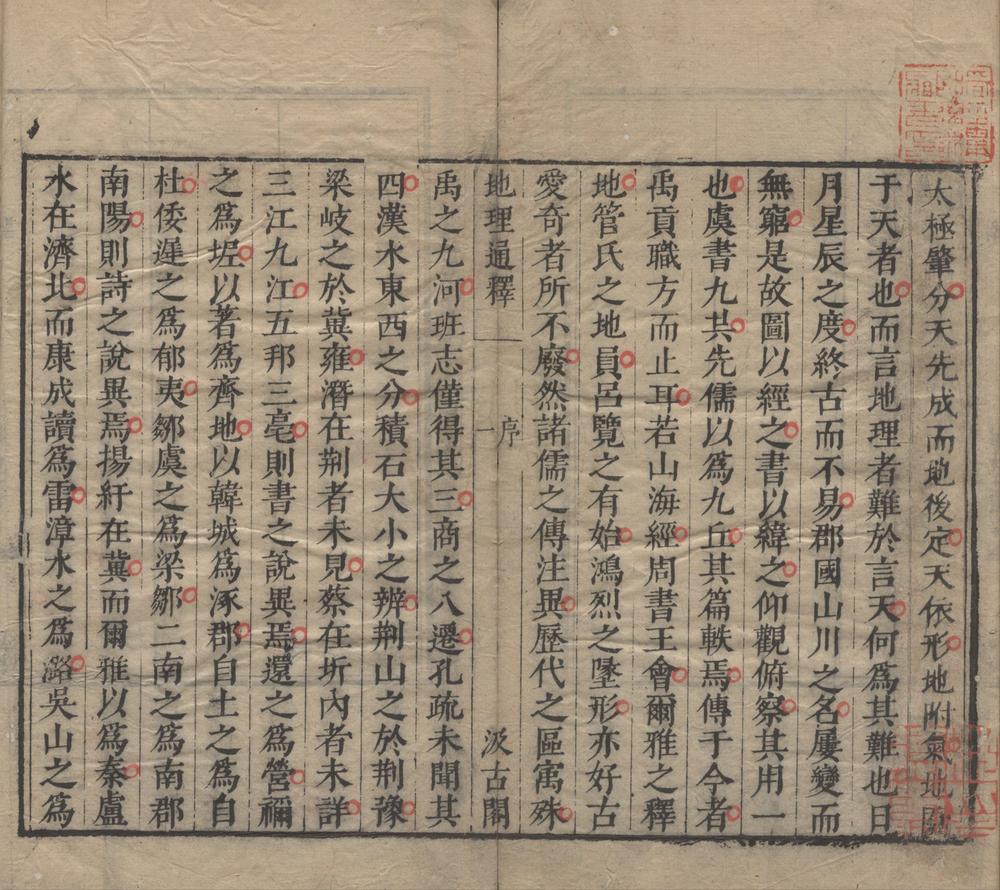 太極肇分天先成而地後定天依形地附氣地囿
于天者也而言地理者難於言天何爲其難也日
月星辰之度終古而不易郡國山川之名屢變而
無窮是故圖以經之書以緯之仰觀俯察其用一
也虞書九共先儒以爲九丘其篇軼焉傳于今者
禹貢職方而止耳若山海經周書王會爾雅之釋
地管氏之地員呂覽之有始鴻烈之墬形亦好古
愛奇者所不廢然諸儒之傳注異歷代之區寓殊
地理通釋 序 一 汲古閣
禹之九河班志僅得其三商之八遷孔疏未聞其
四漢水東西之分積石大小之辨荆山之於荆豫
梁岐之於冀雍潛在荆者未見蔡在圻內者未詳
三江九江五邦三亳則書之說異焉還之爲營禰
之爲坭以著爲齊地以韓城爲涿郡自土之爲自
杜倭遲之爲郁夷鄒虞之爲梁鄒二南之爲南郡
南陽則詩之說異焉揚紆在冀而爾雅以爲秦盧
水在濟北而康成讀爲雷漳水之爲潞吳山之爲